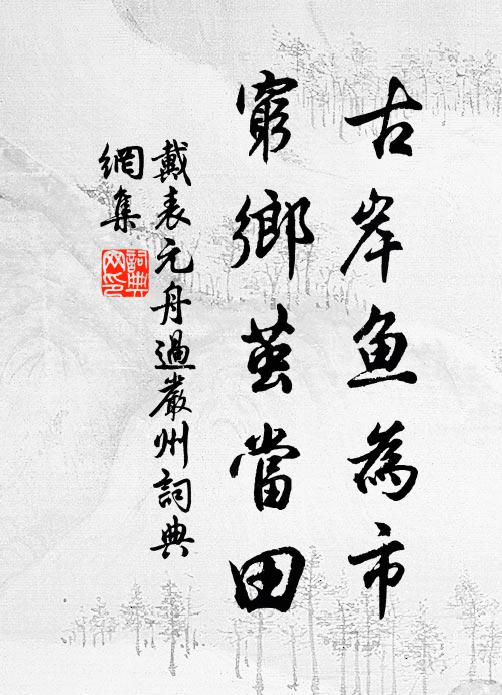 古岸鱼為市
窮鄉茧當田
戴表元舟過嚴州詞典
網集
詞典
网印